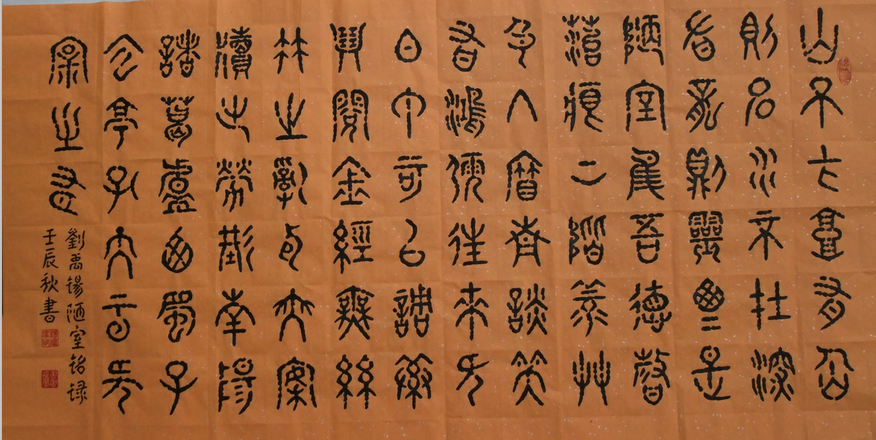 山不在高有仙
則名水不在深
有龍則靈斯是
陋室惟吾德馨
苔痕上階綠草
色入簾青談笑
有鴻儒往來无
白丁可以調素
琴閱金經無絲
竹之亂耳无案
牘之勞形南陽
諸葛廬西蜀子
云亭孔子云何
陋之有
劉禹錫陋室銘錄
壬辰秋書